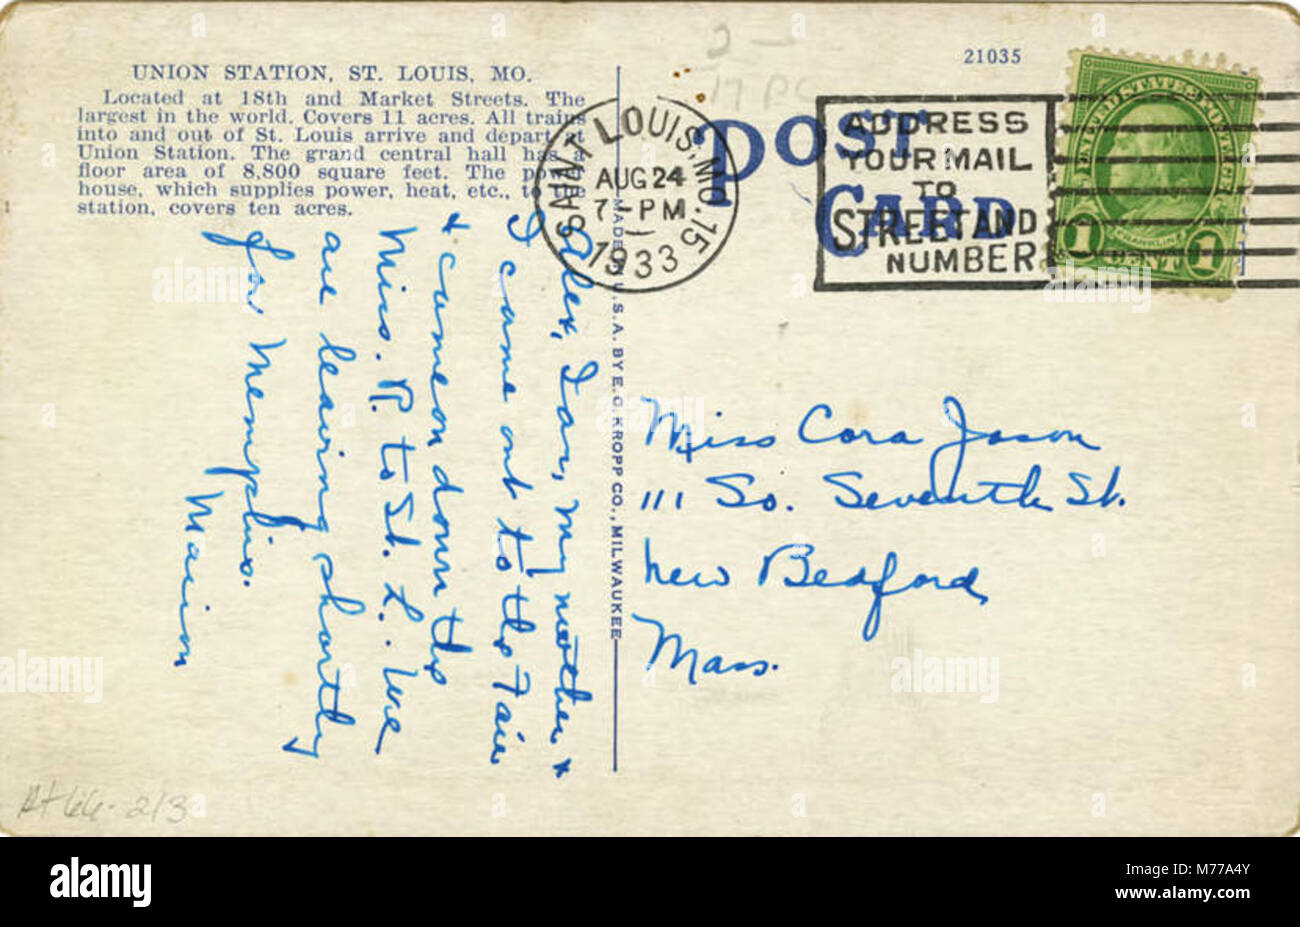 UNION STATION, ST. LOUIS, MO.
Located at 18th and Market Streets. The
largest in the world. Covers 11 acres. All trains
into and out of St. Louis arrive and depart at
Union Station. The grand central hall has a
floor area of 8,800 square feet. The
house, which supplies power, heat, etc.,
station, covers ten acres.
my mother +
I came out to the Fair
+ came on down the
Miss. R. to St. L. We
are leaving shortly
for Memphis.
Marion
MADE U.S.A. BY E. C. KROPP CO., MILWAUKEE
2 –
17 PC
21035
POST
CARD
SAINT LOUIS, MO. 15
AUG 24
7 - PM
1933
ADDRESS
YOUR MAIL
TO
STREET AND
NUMBER
UNITED STATES POSTAGE
FRANKLIN
1 CENT 1
Miss Cora Jason
111 So. Seventh St.
New Bedford,
Mass.
66-213
alamy
alamy
alamy
alamy
Image ID: M77A4Y
www.alamy.com